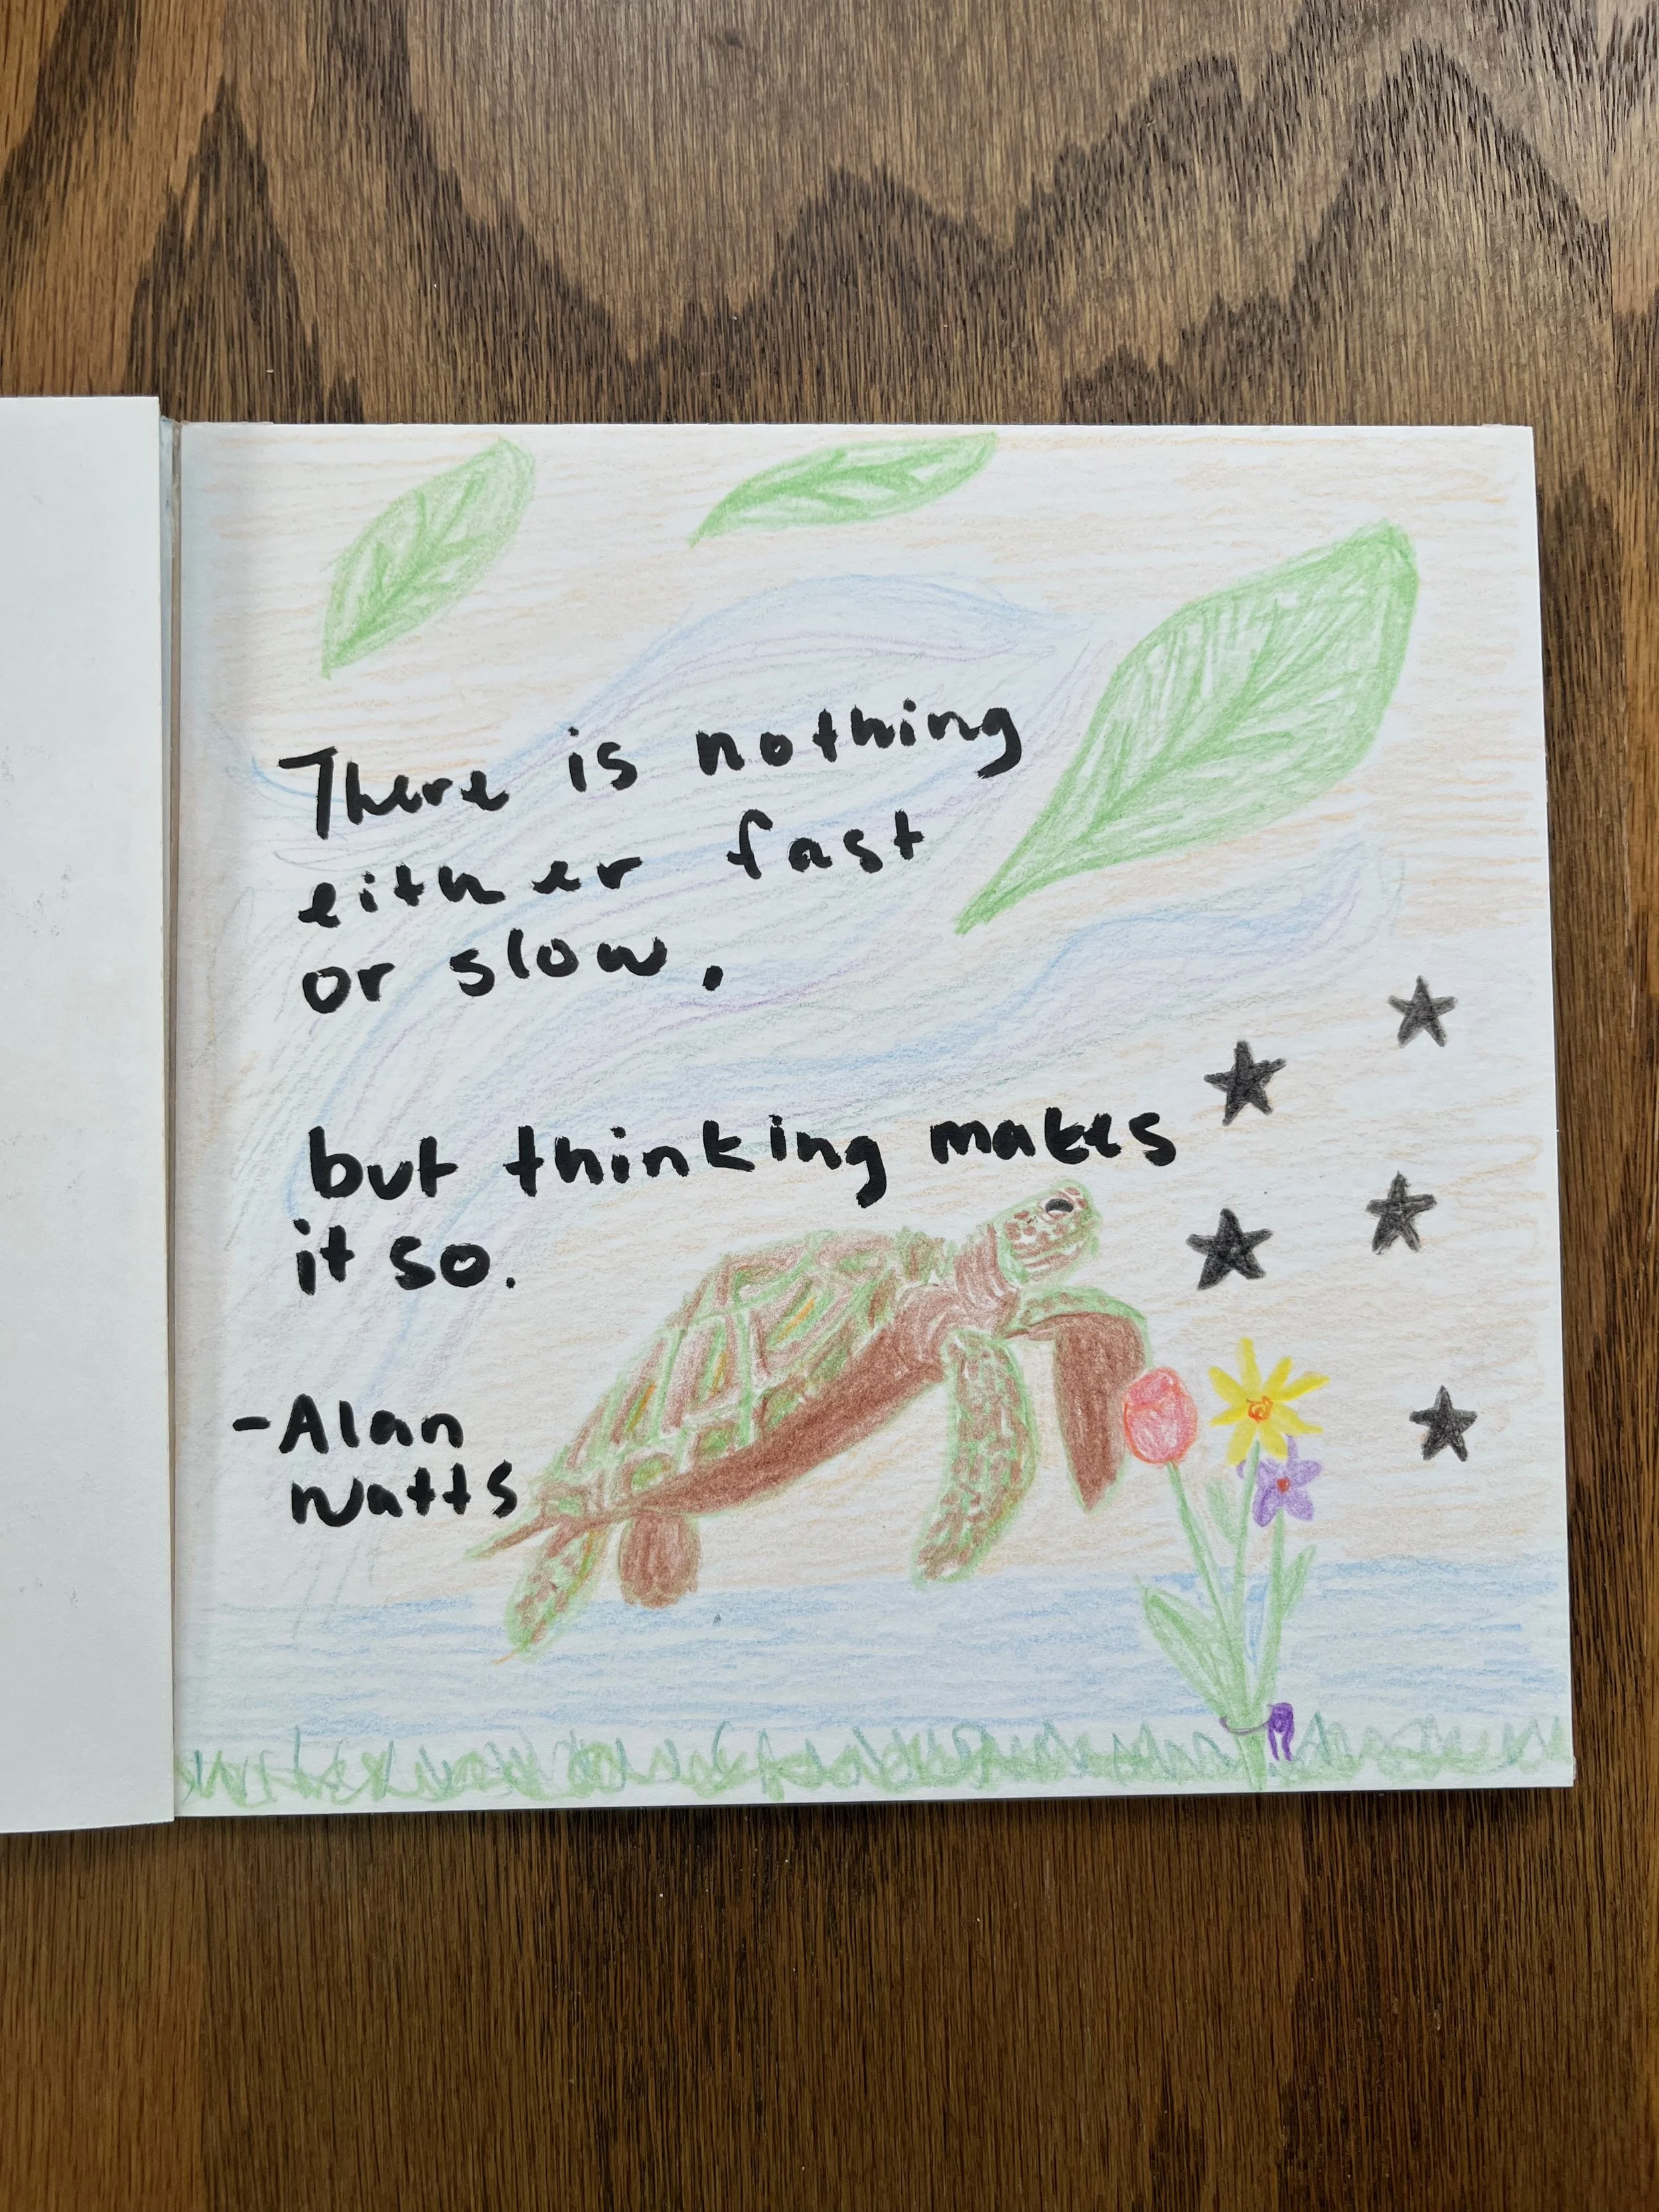 There is nothing
either fast
or slow.
but thinking makes
it so.
-Alan
Watts